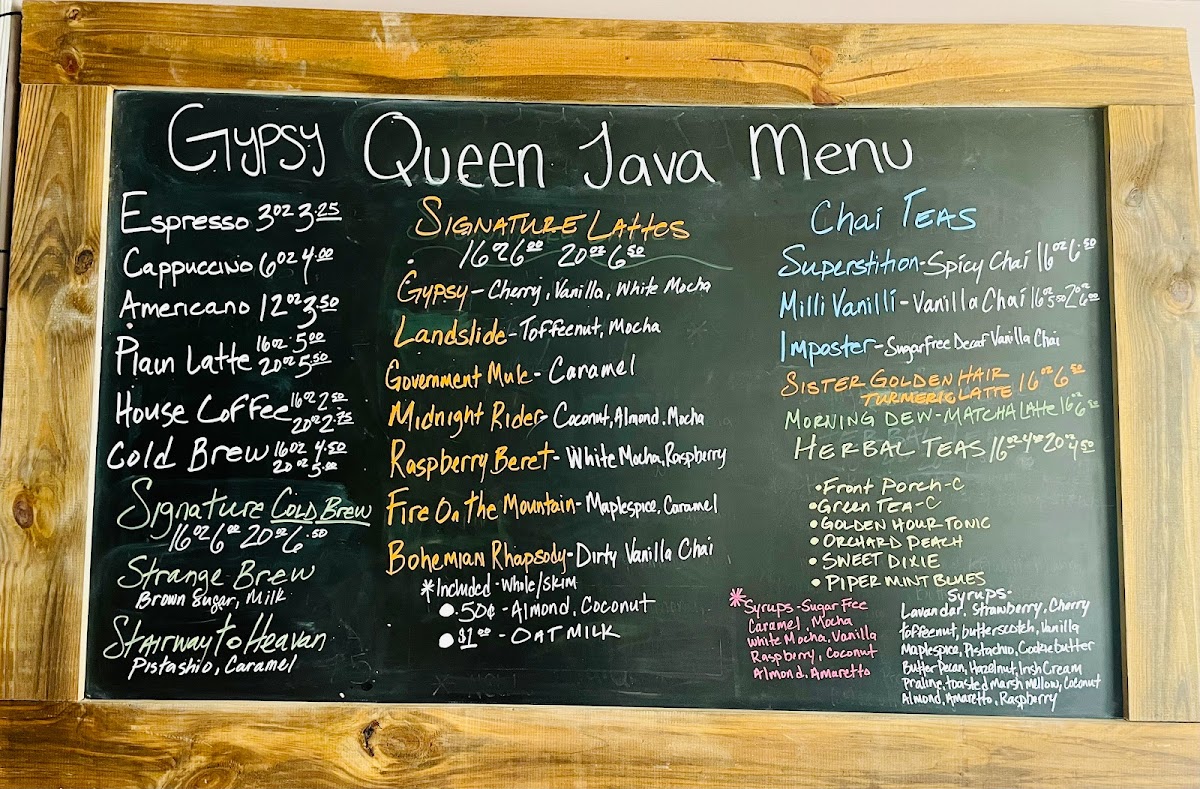 Gypsy Queen Java Menu
Espresso 3oz 3.25
Cappuccino 6oz 4.00
Americano 12oz 3.50
Plain Latte 16oz 5.00
20oz 5.50
House Coffee 16oz 2.50
20oz 2.75
Cold Brew 16oz 4.50
20oz 5.00
Signature Cold Brew
16oz 6.00 20oz 6.50
Strange Brew
Brown Sugar, Milk
Stairway to Heaven
Pistashio, Caramel
Signature Lattes
16oz 6.00 20oz 6.50
Gypsy - Cherry, Vanilla, White Mocha
Landslide - Toffeenut, Mocha
Government Mule - Caramel
Midnight Rider - Coconut, Almond, Mocha
Raspberry Beret - White Mocha, Raspberry
Fire On the Mountain - Maplespice, Caramel
Bohemian Rhapsody - Dirty Vanilla Chai
*Included - Whole/Skim
• .50¢ - Almond, Coconut
• $1.00 - OAT MILK
Chai Teas
Superstition - Spicy Chai 16oz 6.50
Milli Vanilli - Vanilla Chai 16oz 5.50 20oz 6.00
Imposter - Sugar Free Decaf Vanilla Chai
SISTER GOLDEN HAIR
TURMERIC LATTE 16oz 6.50
MORNING DEW - MATCHA LATTE 16oz 6.50
HERBAL TEAS 16oz 4.00 20oz 4.50
• Front Porch - C
• Green Tea - C
• GOLDEN HOUR TONIC
• ORCHARD PEACH
• SWEET DIXIE
• PIPER MINT BLUES
*Syrups - Sugar Free
Caramel, Mocha
White Mocha, Vanilla
Raspberry, Coconut
Almond, Amaretto
Syrups -
Lavandar, Strawberry, Cherry
toffeenut, butterscotch, Vanilla
Maplespice, Pistachio, Cookie butter
Butter Pecan, Hazelnut, Irish Cream
Praline, toasted marsh mellow, Coconut
Almond, Amaretto, Raspberry